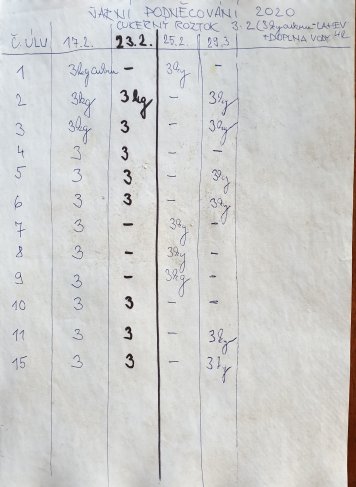 JARNÍ PODNĚCOVÁNÍ 2020
CUKERNÝ ROZTOK 3:2 (3kg cukru-LAHEV
+DOPLNA VODY
Č. ÚLU 17.2. 23.2. 25.2. 27.3
1 3kg cukru - 3kg -
2 3kg 3kg - 3kg
3 3kg 3 - 3kg
4 3 3 - -
5 3 3 - 3kg
6 3 3 - 3kg
7 3 - 3kg -
8 3 - 3kg -
9 3 - 3kg -
10 3 3 - -
11 3 3 - 3kg
15 3 3 - 3kg